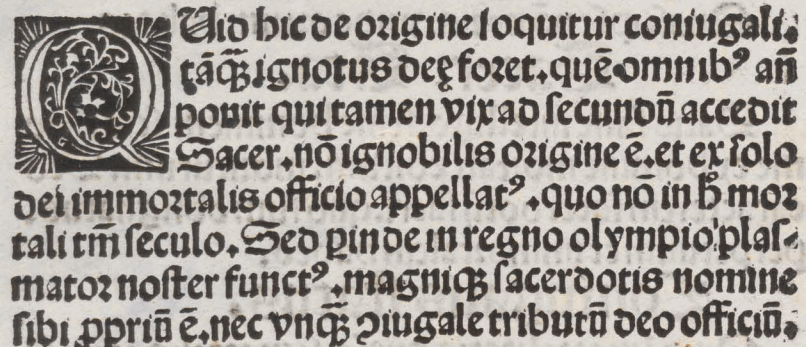 QUid hic de origine loquitur coniugali.
tāqꝫ ignotus deꝰ foret. quē omnibꝰ an̄
ponit qui tamen vix ad secundū accedit
Sacer. nō ignobilis origine ē. et ex solo
dei immortalis officio appellatꝰ. quo nō in ħ mor
tali tm̄ seculo. Sed ꝑinde in regno olympio plas⸗
mator noster functꝰ. magniqꝫ sacerdotis nomine
sibi ꝓpriū ē. nec vnqꝫ̄ ꝯiugale tributū deo officiū.